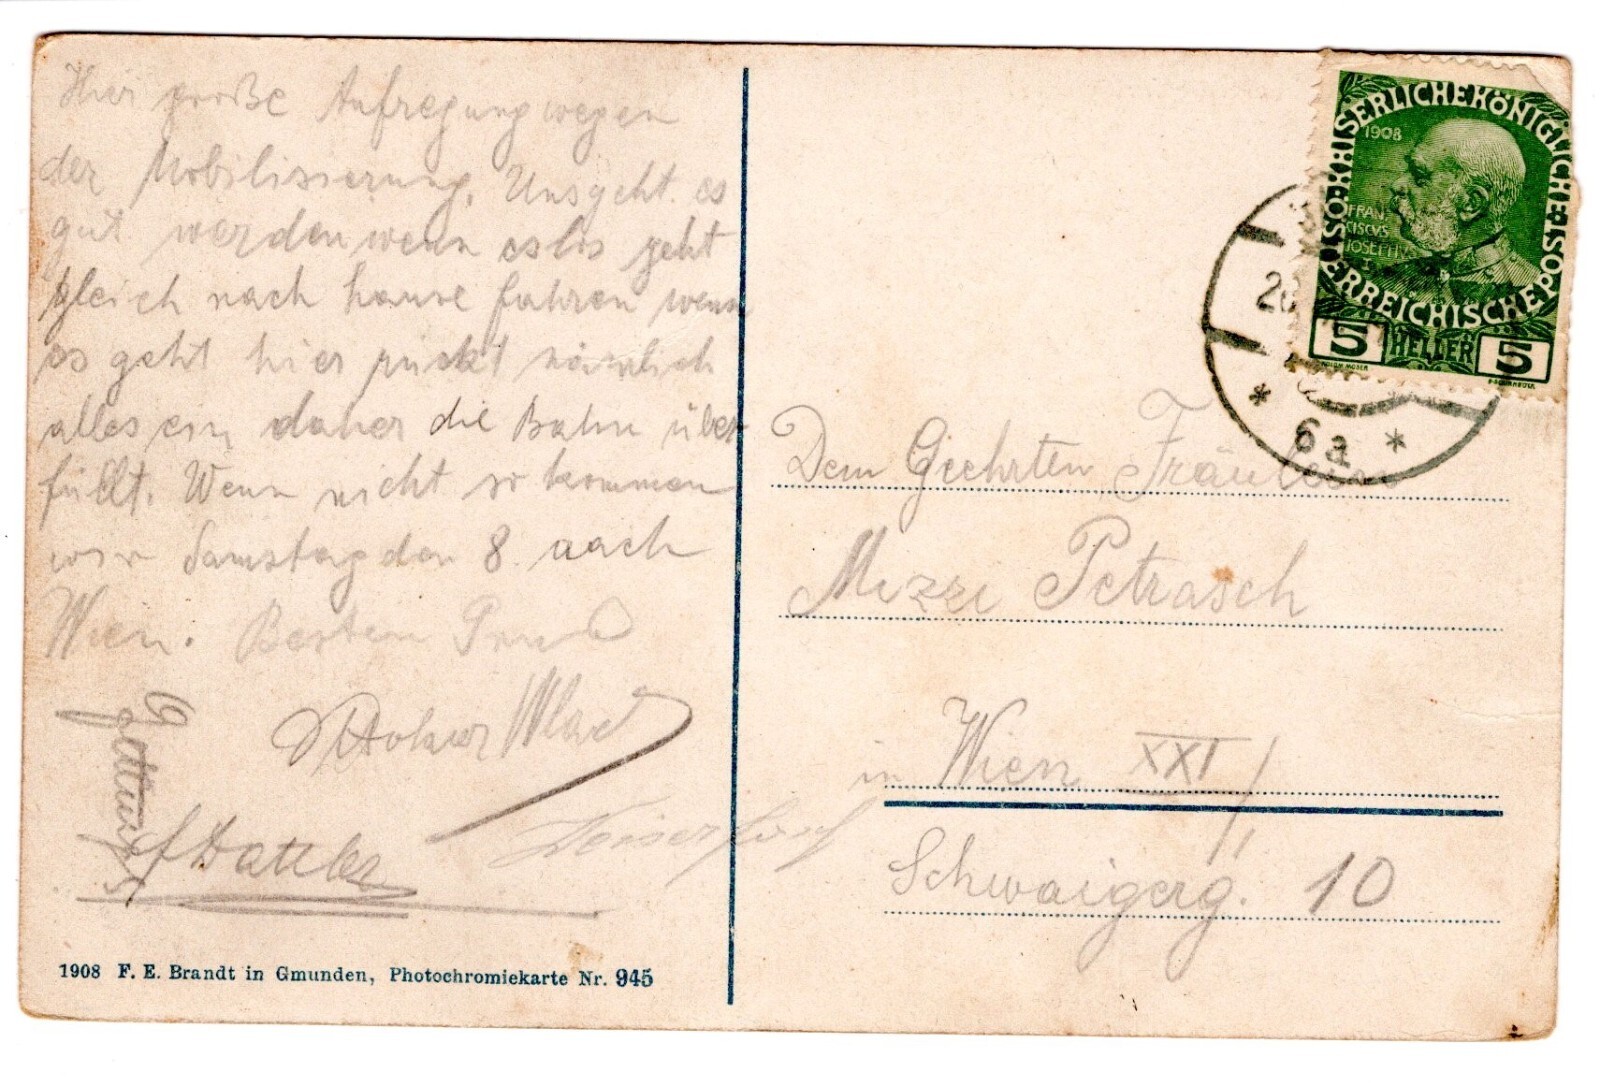 Hier große Aufregung wegen
der Mobilisierung, Uns geht es
gut werden wenn es bis geht
gleich nach hause fahren wenn
es geht hier rückt nämlich
alles ein daher die Bahn über
füllt. Wenn nicht so kommen
wir Samstag den 8. nach
Wien. Besten Gruß
1908 F. E. Brandt in Gmunden, Photochromiekarte Nr. 945
KAISERLICHE KÖNIGLICHE ÖSTERREICHISCHE POST
1908
FRAN-
CISCVS
JOSEPH
5 HELLER 5
6a
Dem Geehrten Fräulein
Mizzi Petrasch
in Wien XXI
Schwaigerg. 10